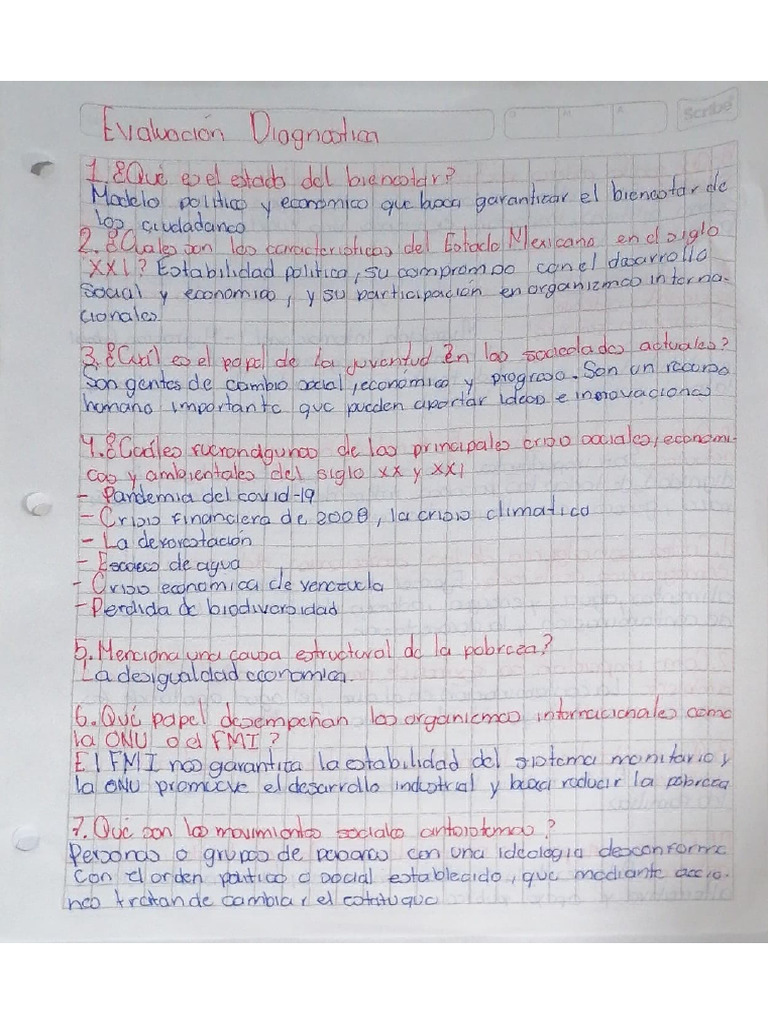 Scribe
Evaluación Diagnostica
1. ¿Qué es el estado del bienestar?
Modelo politico y economico que busca garantizar el bienestar de
los ciudadanos
2. ¿Cuales son las caracteristicas del Estado Mexicano en el siglo
XXI? Estabilidad politica, su compromiso con el desarrollo
social y economico, y su participación en organizmos interna-
cionales.
3. ¿Cuál es el papel de la juventud en las sociedades actuales?
Son gentes de cambio social, económico y progreso. Son un recurso
humano importante que pueden aportar ideas e innovaciones
4. ¿Cuáles fueron algunas de las principales crisis sociales, economi-
cas y ambientales del siglo xx y xxI
- Pandemia del covid-19
- Crisis Financiera de 2008, la crisis climatica
- La deforestación
- Escases de agua
- Crisis economica de venezuela
- Perdida de biodiversidad
5. Menciona una causa estructural de la pobreza?
La desigualdad economica.
6. Qué papel desempeñan los organismos internacionales como
la ONU o el FMI?
El FMI nos garantiza la estabilidad del sistema monitario y
la ONU promueve el desarrollo industrial y busca reducir la pobreza
7. Qué son los movimientos sociales antisistemas?
Personas o grupos de personas con una ideologia desconforme
con el orden politico o social establecido, que mediante accio-
nes tratan de cambiar el